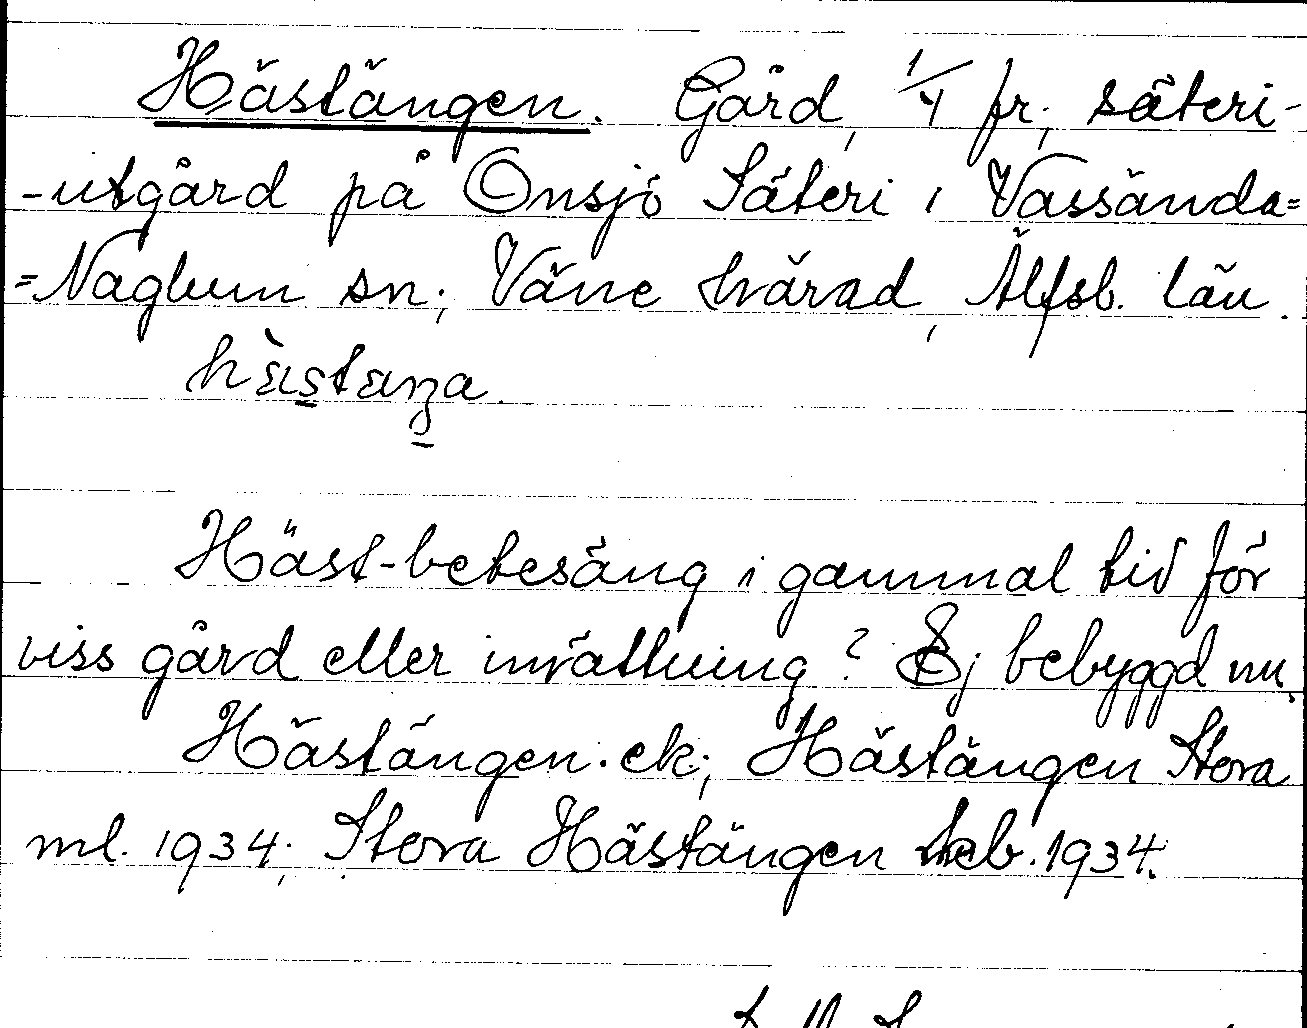 Hästängen. Gård, 1/4 fr, säteri-
-utgård på Onsjö Säteri i Vassända=
=Naglum sn; Väne härad, Älfsb. län.
hästäŋa
Häst-betesäng i gammal tid för
viss gård eller inrättning? Ej bebyggd nu.
Hästängen. ek; Hästängen Stora
ml. 1934; Stora Hästängen 1934.